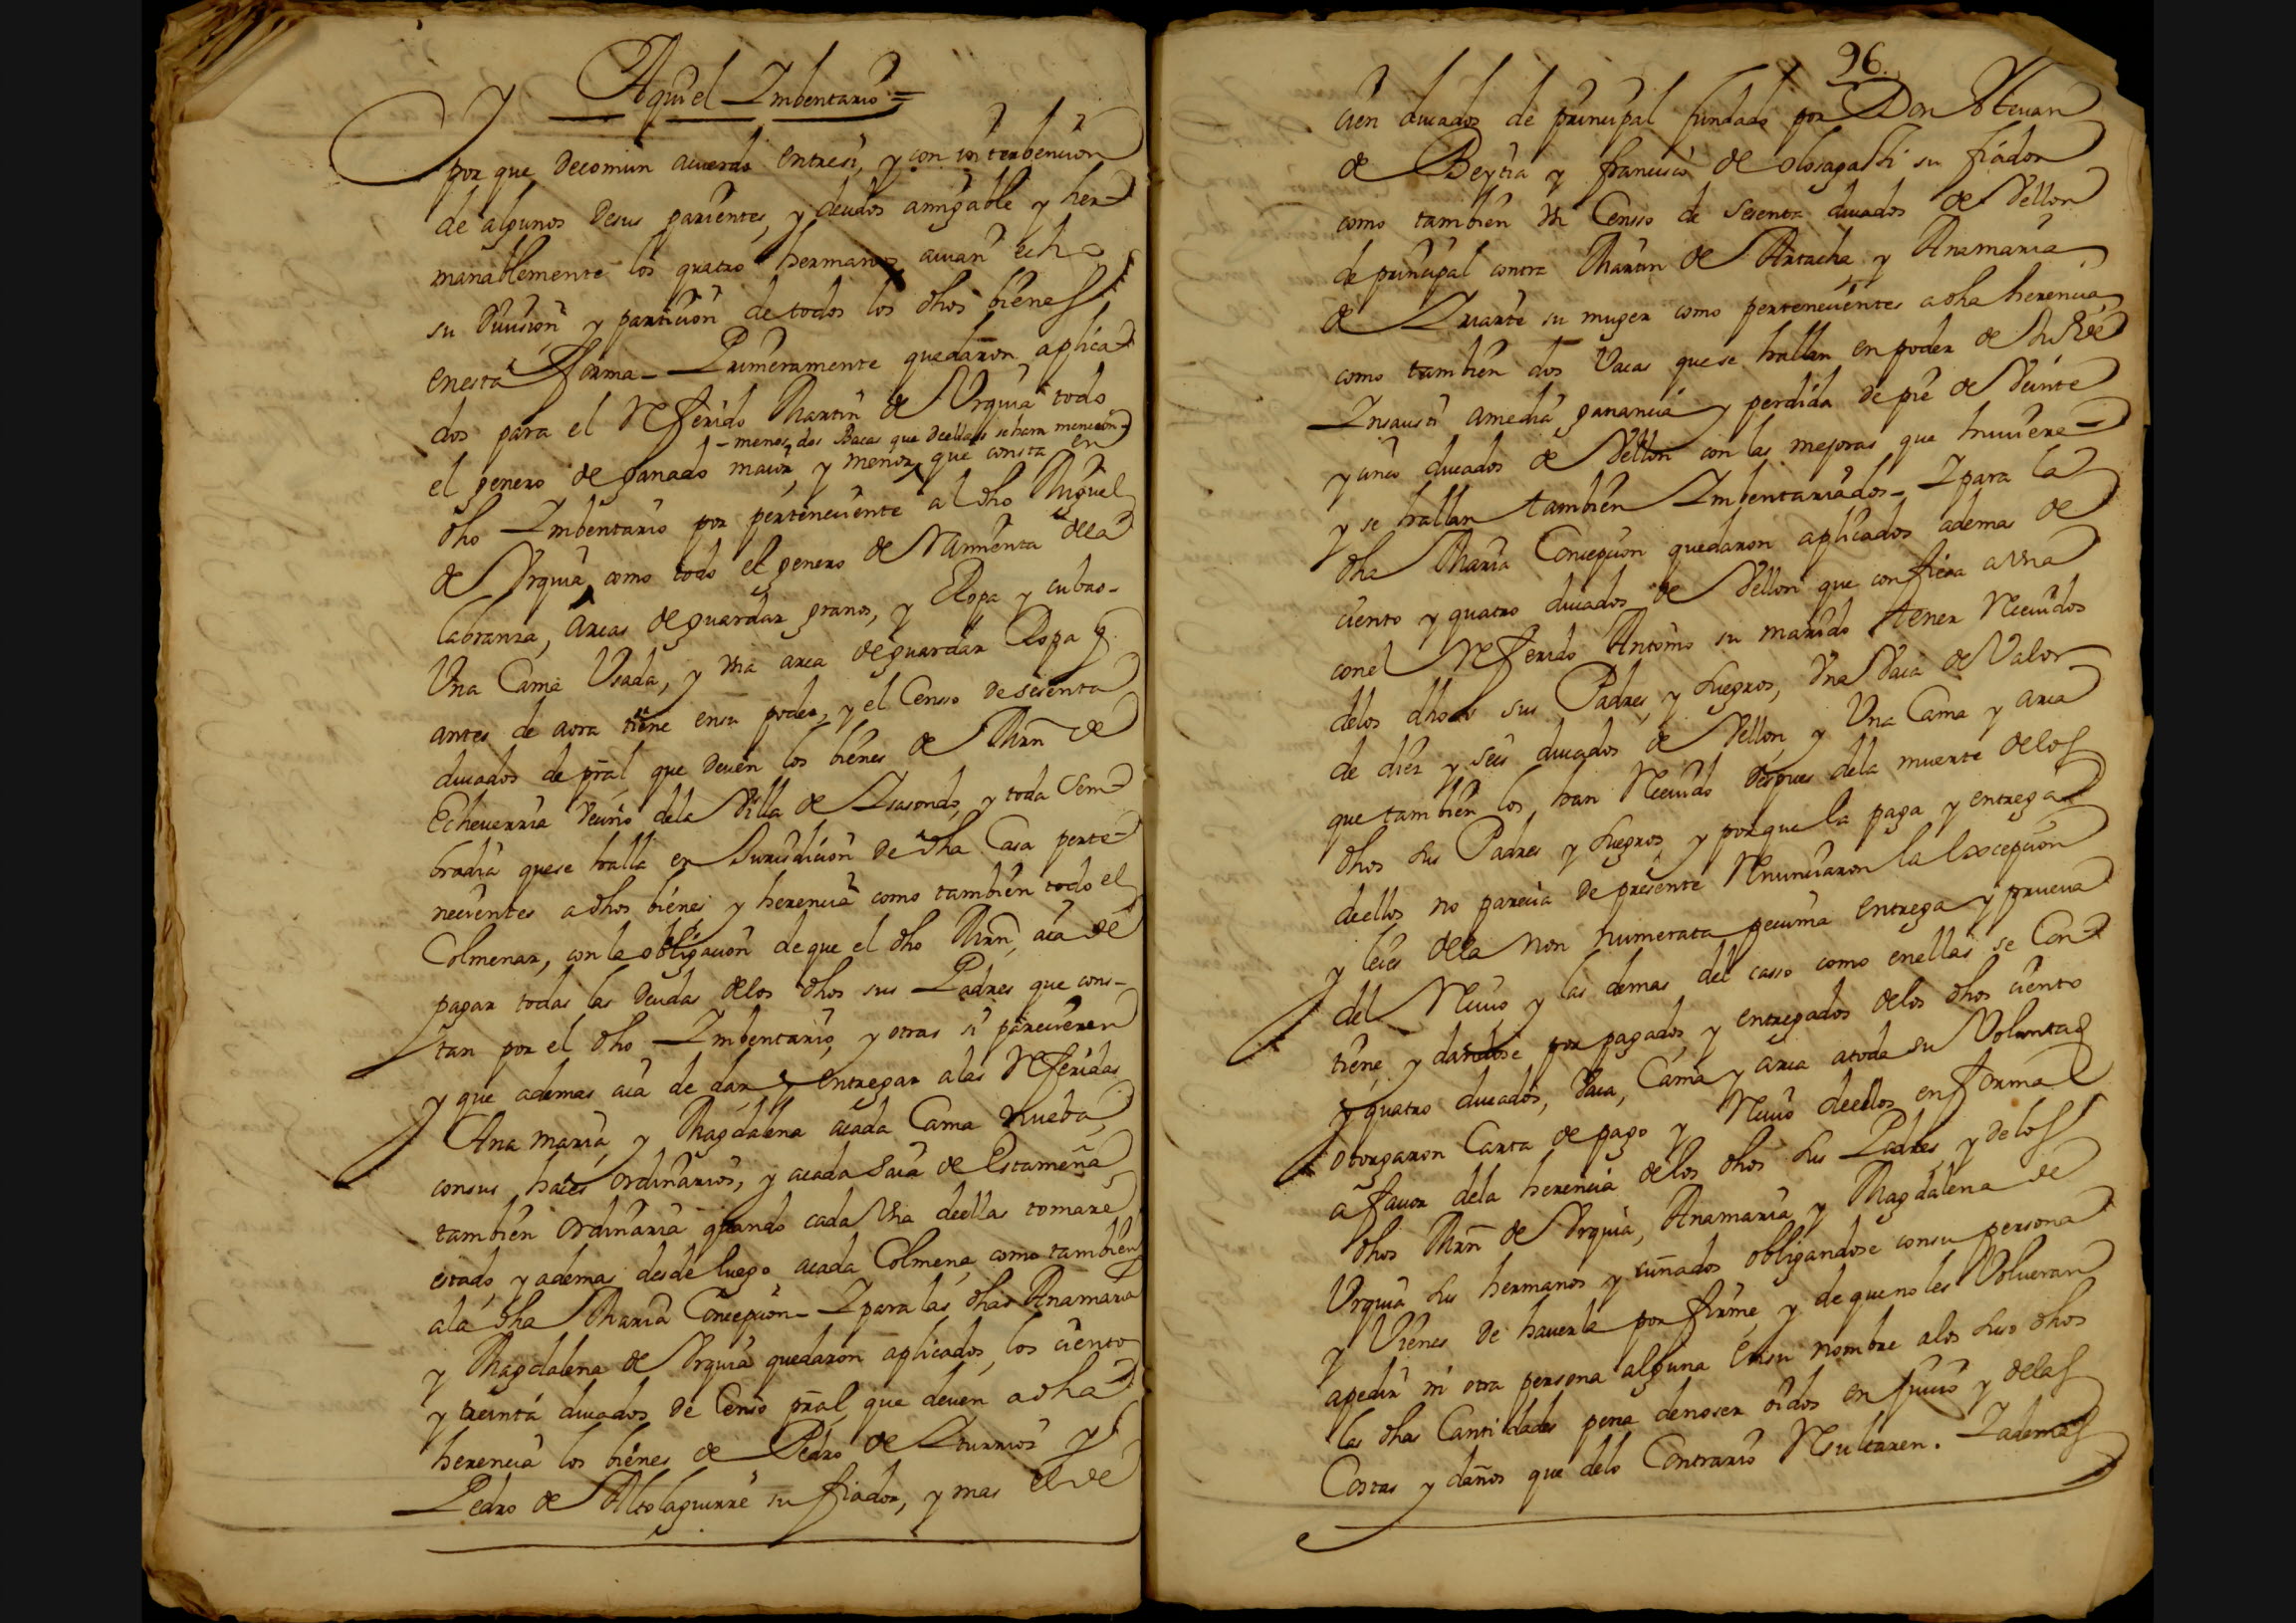 Aqui el Imbentario =
Y por que de comun acuerdo entresi, y con interbencion
de algunos desus parientes, y deudos amigable y her-
manablemente los quatro hermanos auian echo
su Diuision y particion de todos los dhos bienes
enesta forma - Primeramente quedaron aplica-
dos para el Referido Martin de Vrquia todo
- menos dos Bacas que deellas se hara mencion -
el genero de ganado maior, y menor, que consta en
dho Imbentario por perteneciente al dho Miguel
de Vrquia, como todo el genero de Rarmienta dela
labranza, arcas de guardar granos, y Ropa y cubas -
Vna Cama Vsada, y vna arca deguardar Ropa q
antes de aora tiene ensu poder, y el Censo de sesenta
ducados de pral que deuen los bienes de Mrn de
Echeuerria Vecino dela Villa de Isasondo, y toda Sem-
bradia quese halla en Jurisdicion de dha Casa perte-
necientes a dhos bienes y herencia como tambien todo el
Colmenar, con la obligacion de que el dho Mrn, aia de
pagar todas las deudas delos dhos sus Padres que cons-
tan por el dho Imbentario, y otras si parecieren
y que ademas aia de dar y entregar alas Referidas
Ana maria, y Magdalena acada Cama nueba,
consus haces ordinarios, y acada Saia de Estameña
tambien ordinaria quando cada Vna deellas tomare
estado, y ademas desde luego acada Colmena, como tambien
ala dha Maria Concepcion - Y para las dhas Anamaria
y Magdalena de Vrquia quedaron aplicados, los ciento
y treinta ducados de Censo pral, que deuen a dha
herencia los bienes de Pedro de Iturrioz y
Pedro de Altolaguirre su fiador, y mas el de
96.
cien ducados de principal fundado por Don Esteuan
de Beytia y francisco de Olosagasti su fiador
como tambien vn Censso de sesenta ducados de Vellon
de principal contra Martin de Artacha, y Anamaria
de Iriarte su muger como pertenecientes a dha herencia,
como tambien dos Vacas quese hallan en poder de de
Insausti amedia ganancia y perdida de pie de Veinte
y cinco ducados de Vellon con las mejoras que huuiere
y se hallan tambien Imbentariados - Y para la
dha Maria Concepcion quedaron aplicados, ademas de
ciento y quatro ducados de Vellon que confiesa a vna
conel Referido Antonio su marido tener Recividos
delos dhos sus Padres, y suegros, Vna Vaca de Valor
de diez y seis ducados de Vellon, y Vna Cama y arca
que tambien los, han Recivido despues dela muerte delos
dhos sus Padres y suegros, y porque la paga y entrega
deellos no parecia de presente Renunciaron la Excepcion
y leies dela non numerata pecunia entrega y prueua
del Reciuo y las demas del casso como enellas se Con-
tiene, y dandose por pagados, y entregados delos dhos ciento
y quatro ducados, Vaca, Cama y arca atoda su Voluntad
otorgaron Carta de pago y Reciuo deellos en forma
a fauor dela herencia delos dhos sus Padres, y de los
dhos Mrn de Vrquia, Anamaria y Magdalena de
Vrquia sus hermanos y cuñados obligandose consu persona
y Vienes de hauerla por firme, y de que no les Volueran
apedir ni otra persona alguna ensu nombre alos suso dhos
las dhas Cantidades pena denoser oidos en Juicio y delas
Costas y daños que delo Contrario Resultaren. Y ademas